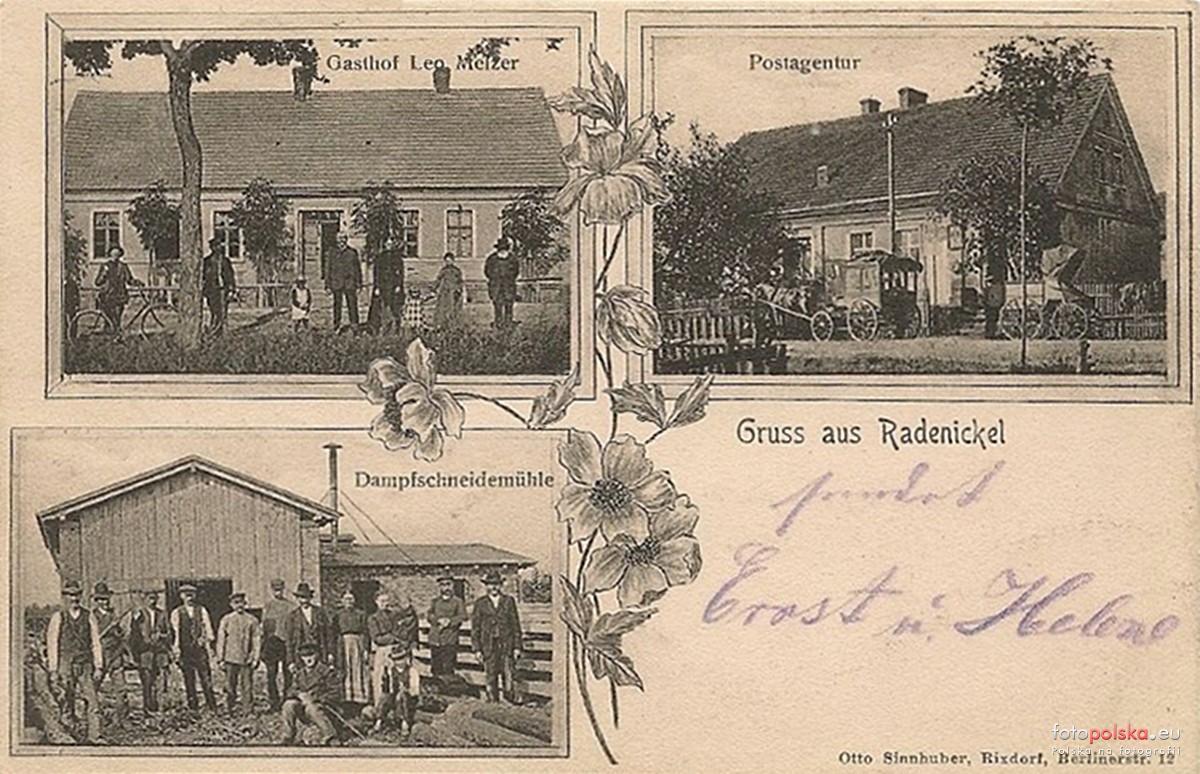 Gasthof Leo Melzer
Postagentur
Gruss aus Radenickel
sendet
Ernst u. Helene
Dampfschneidemühle
Otto Sinnhuber, Rixdorf, Berlinerstr. 12
fotopolska.eu
Polska na fotografii